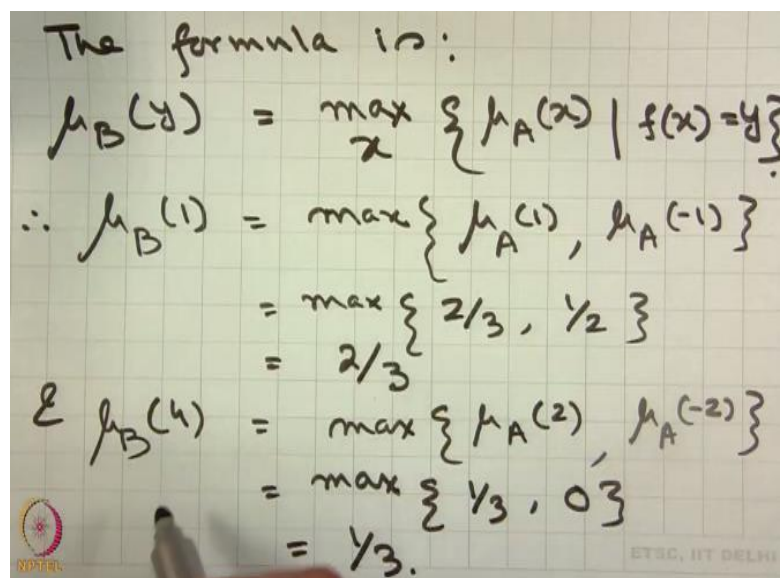 The formula is:
μ_B(y) = max_x { μ_A(x) | f(x)=y }.
∴ μ_B(1) = max { μ_A(1), μ_A(-1) }
= max { 2/3, 1/2 }
= 2/3
& μ_B(4) = max { μ_A(2), μ_A(-2) }
= max { 1/3, 0 }
= 1/3.
NPTEL
ETSC, IIT DELHI